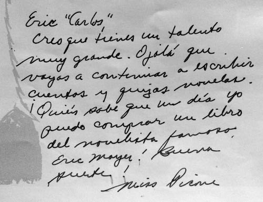 Eric "Carlos"
Creo que tienes un talento
muy grande. Ojalá que
vayas a continuar a escribir
cuentos y quizás novelas.
¡Quién sabe que un día yo
puedo comprar un libro
del novelista famoso
Eric Mayer! Buena
suerte!
Miss